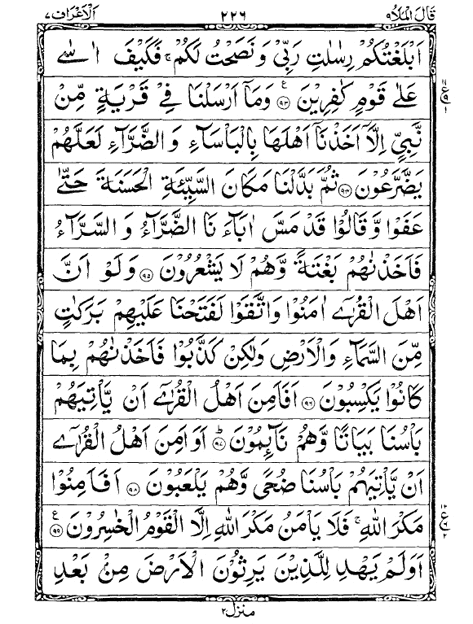 قَالَ الْمَلَاُ ٩ ٢٢٦ اَلْاَعْرَاف ٧
اَبْلَغْتُكُمْ رِسٰلٰتِ رَبِّیْ وَ نَصَحْتُ لَكُمْ ۚ فَكَیْفَ اٰسٰی
عَلٰی قَوْمٍ كٰفِرِیْنَ ۠﴿۹۳﴾ وَمَاۤ اَرْسَلْنَا فِیْ قَرْیَةٍ مِّنْ
نَّبِیٍّ اِلَّاۤ اَخَذْنَاۤ اَهْلَهَا بِالْبَاْسَآءِ وَ الضَّرَّآءِ لَعَلَّهُمْ
یَضَّرَّعُوْنَ ﴿۹۴﴾ ثُمَّ بَدَّلْنَا مَكَانَ السَّیِّئَةِ الْحَسَنَةَ حَتّٰی
عَفَوْا وَّ قَالُوْا قَدْ مَسَّ اٰبَآءَ نَا الضَّرَّآءُ وَ السَّرَّآءُ
فَاَخَذْنٰهُمْ بَغْتَةً وَّهُمْ لَا یَشْعُرُوْنَ ﴿۹۵﴾ وَ لَوْ اَنَّ
اَهْلَ الْقُرٰۤی اٰمَنُوْا وَاتَّقَوْا لَفَتَحْنَا عَلَیْهِمْ بَرَكٰتٍ
مِّنَ السَّمَآءِ وَالْاَرْضِ وَلٰكِنْ كَذَّبُوْا فَاَخَذْنٰهُمْ بِمَا
كَانُوْا یَكْسِبُوْنَ ﴿۹۶﴾ اَفَاَمِنَ اَهْلُ الْقُرٰۤی اَنْ یَّاْتِیَهُمْ
بَاْسُنَا بَیَاتًا وَّهُمْ نَآئِمُوْنَ ؕ﴿۹۷﴾ اَوَ اَمِنَ اَهْلُ الْقُرٰۤی
اَنْ یَّاْتِیَهُمْ بَاْسُنَا ضُحًی وَّهُمْ یَلْعَبُوْنَ ﴿۹۸﴾ اَفَاَمِنُوْا
مَكْرَ اللّٰهِ ۚ فَلَا یَاْمَنُ مَكْرَ اللّٰهِ اِلَّا الْقَوْمُ الْخٰسِرُوْنَ ۠﴿۹۹﴾
اَوَلَمْ یَهْدِ لِلَّذِیْنَ یَرِثُوْنَ الْاَرْضَ مِنْۢ بَعْدِ
منزل ٢